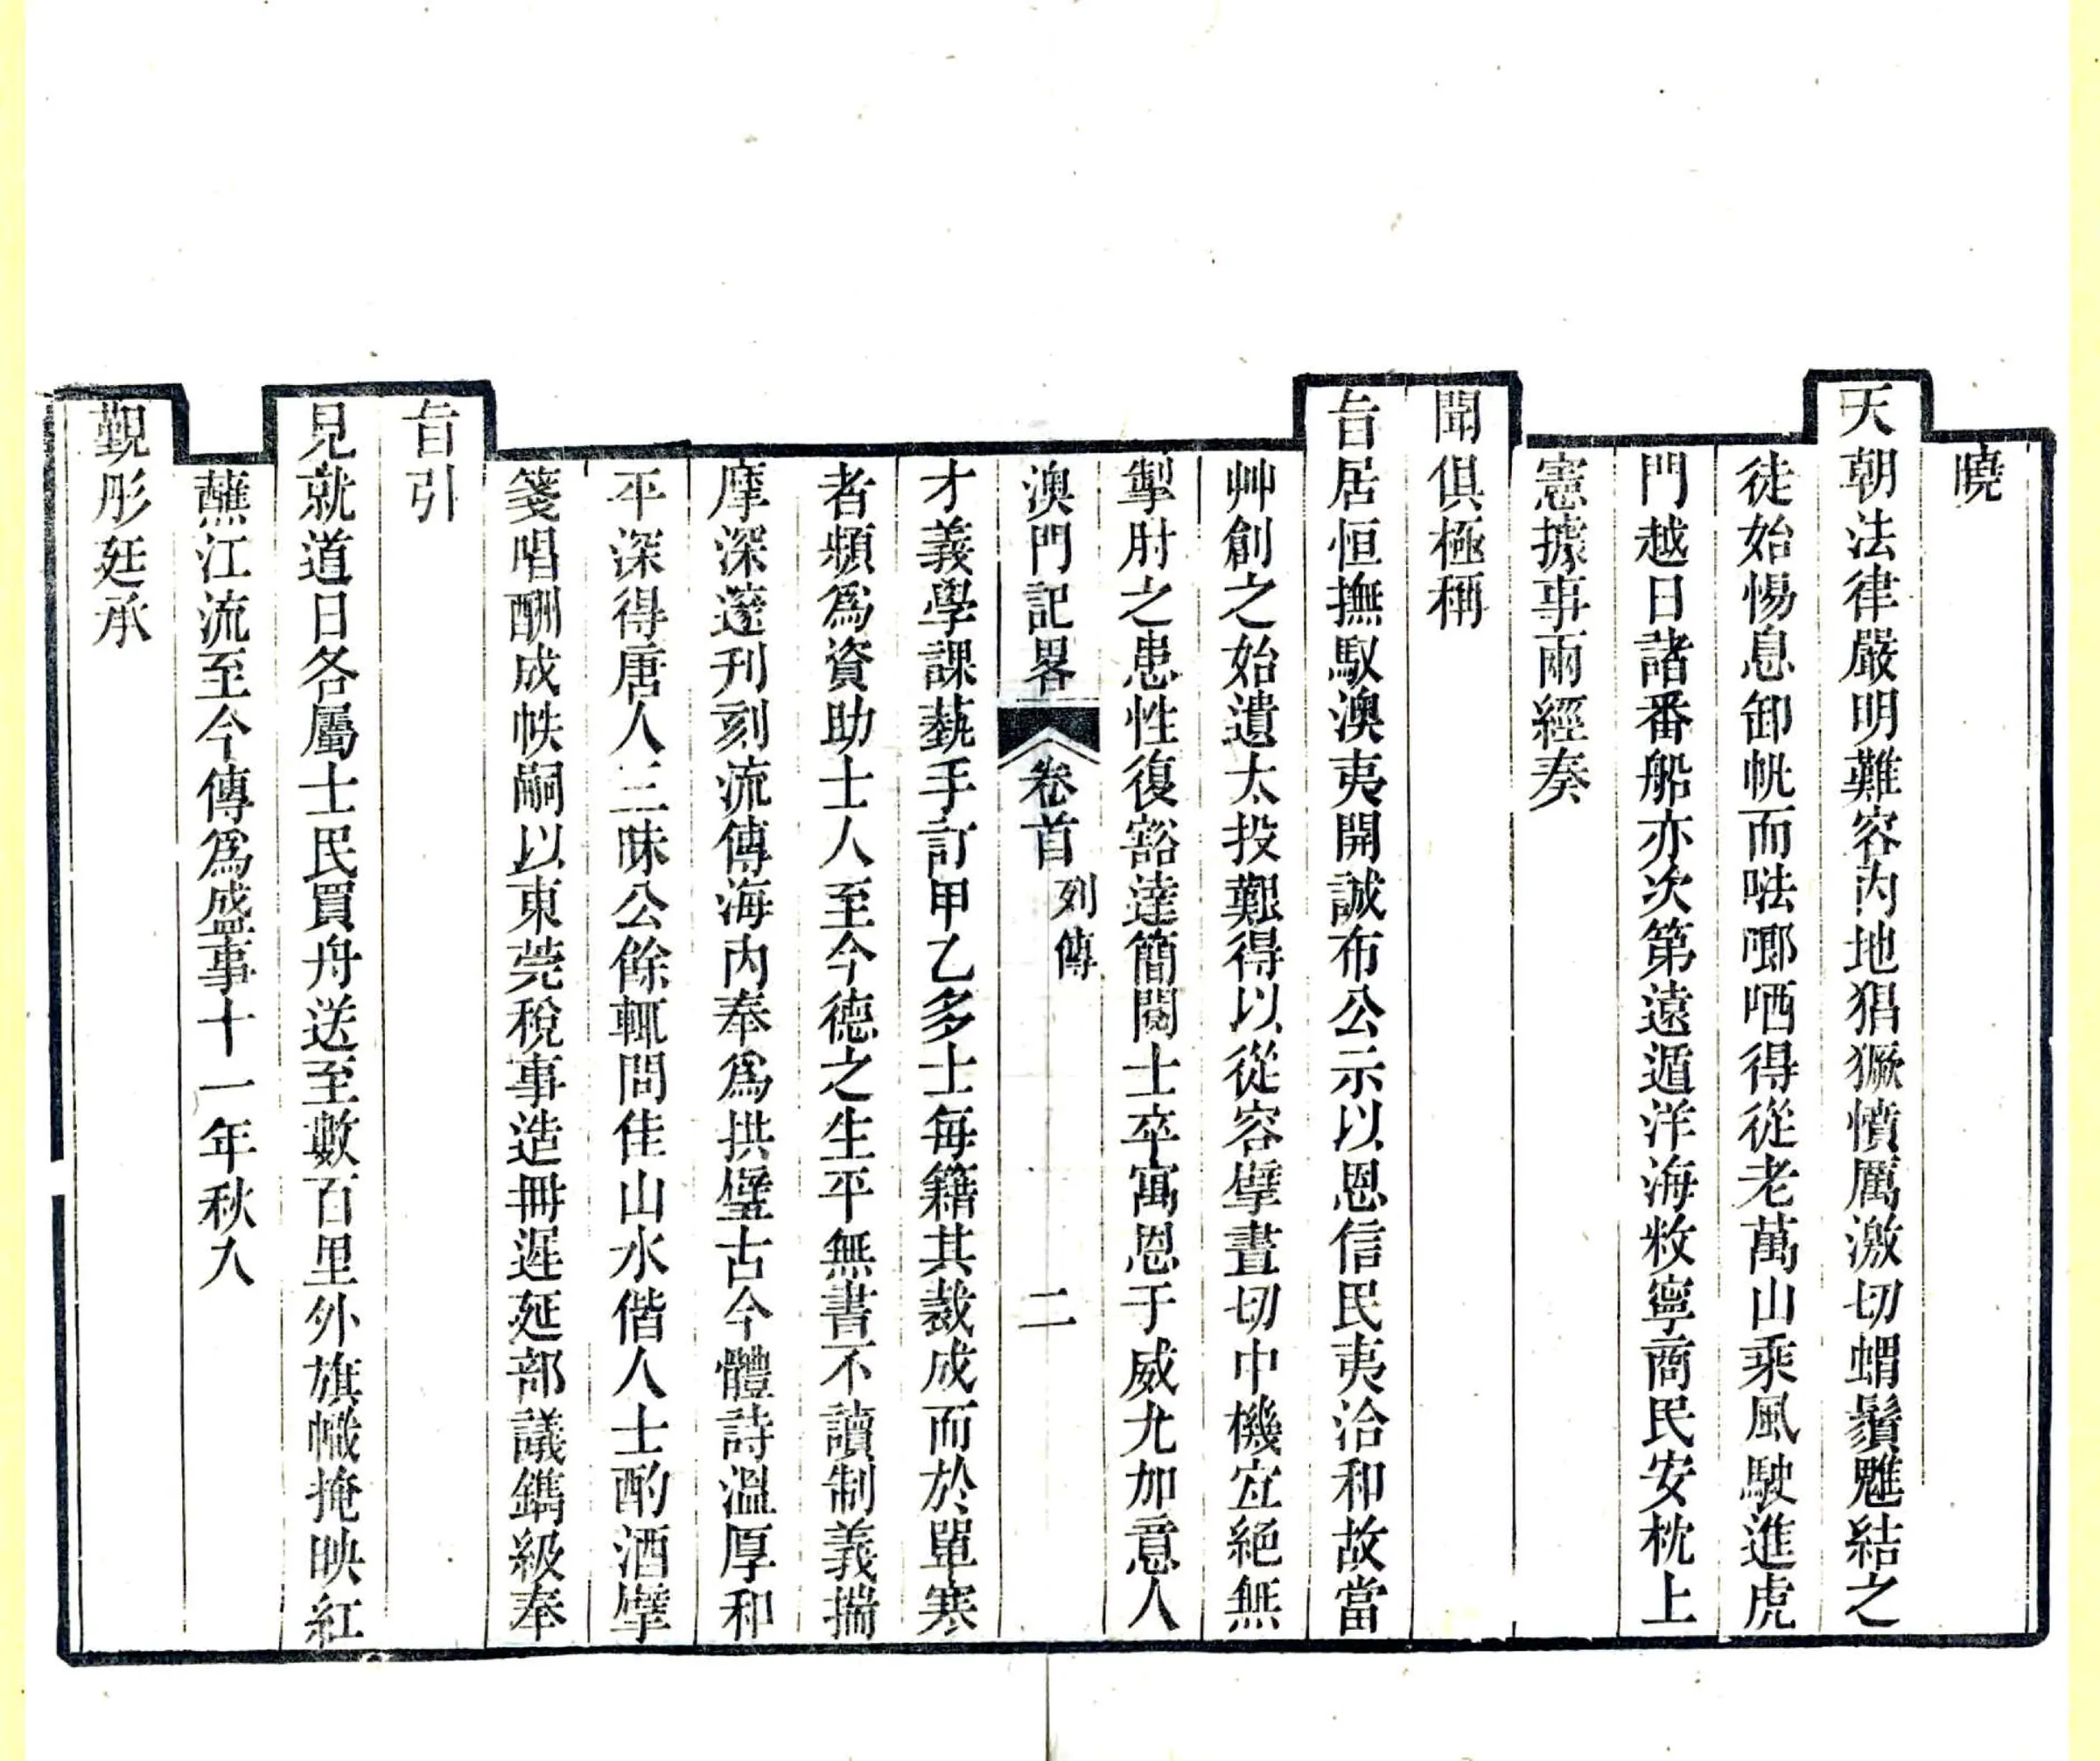 曉
天朝法律嚴明難容內地猖獗憤厲激切蝟鬚魋結之
徒始惕息卸帆而呿啷哂得從老萬山乘風駛進虎
門越日諸番船亦次第遠遁洋海敉寧商民安枕上
憲據事兩經奏
聞俱極稱
旨居恒撫馭澳夷開誠布公示以恩信民夷洽和故當
艸創之始遺大投艱得以從容擘畫切中機宜絕無
掣肘之患性復豁達簡閱士卒寓恩于威尤加意人
澳門記畧 卷首 列傳 二
才義學課藝手訂甲乙多士每籍其裁成而於單寒
者頻為資助士人至今德之生平無書不讀制義揣
摩深邃刊刻流傳海內奉為拱璧古今體詩溫厚和
平深得唐人三昧公餘輒問佳山水偕人士酌酒擘
箋唱酬成帙嗣以東莞稅事造冊遲延部議鐫級奉
旨引
見就道日各屬士民買舟送至數百里外旗幟掩映紅
蘸江流至今傳為盛事十一年秋入
覲彤廷承